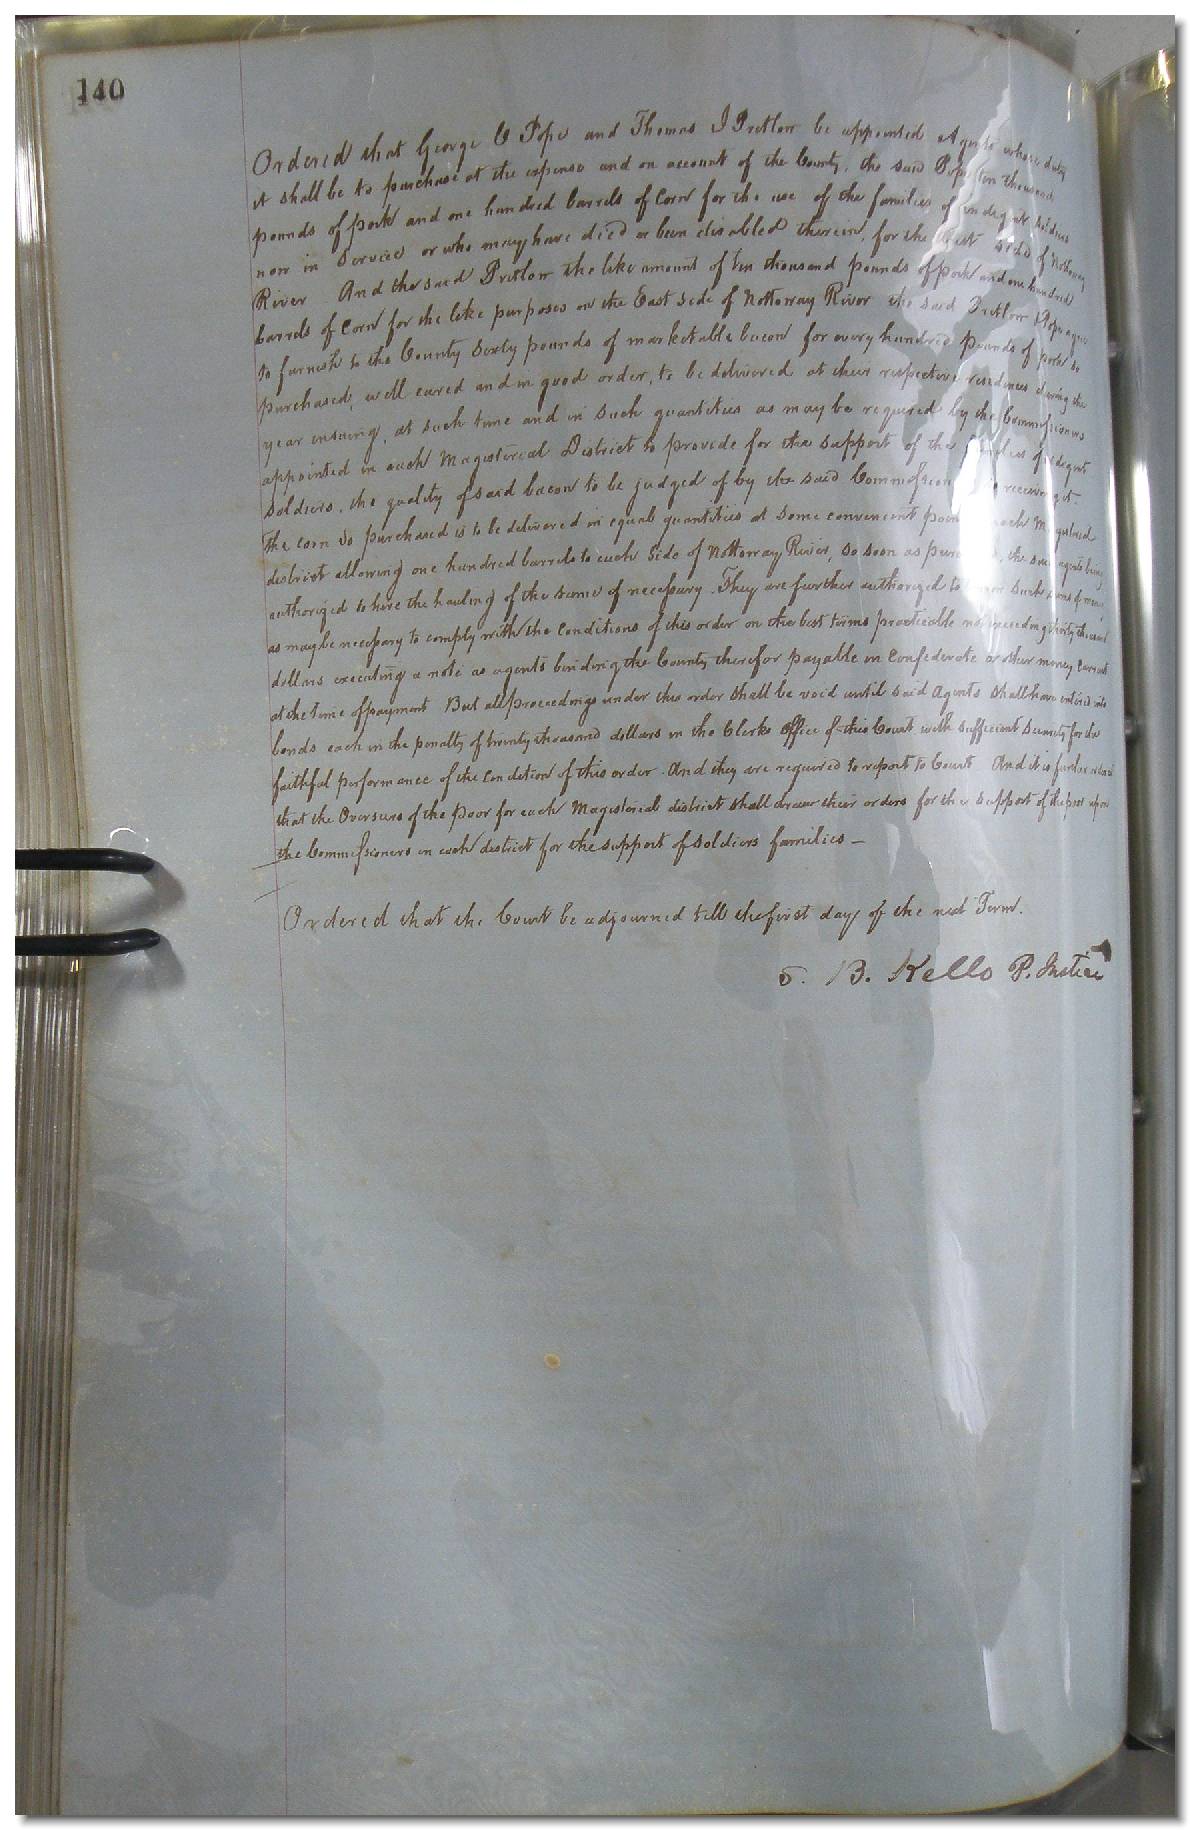 140
Ordered that George C Pope and Thomas J Pretlow be appointed Agents whose duty
it shall be to purchase at the expense and on account of the County, the said Pope ten thousand
pounds of pork and one hundred barrels of Corn for the use of the families of indegent soldiers
now in Service or who may have died or been disabled therein, for the West side of Nottoway
River And the said Pretlow the like amount of ten thousand pounds of pork and one hundred
barrels of Corn for the like purposes on the East side of Nottoway River the said Pretlow & Pope agree
to furnish to the County Sixty pounds of marketable bacon for every hundred pounds of pork so
purchased, well cured and in good order, to be delivered at their respective residences during the
year ensuing, at such time and in such quantities as may be required by the Commissioners
appointed in each Magisterial District to provide for the support of the families of indegent
soldiers, the quality of said bacon to be judged of by the said Commissioners receiving it.
The corn so purchased is to be delivered in equal quantities at some convenient point each Magisterial
district allowing one hundred barrels to each side of Nottoway River, so soon as purchased, the said agents being
authorized to hire the hauling of the same if necessary. They are further authorized to such sums of money
as may be necessary to comply with the conditions of this order on the best terms practicable not exceeding thirty thousand
dollars executing a note as agents binding the County therefor payable in Confederate or other money current
at the time of payment But all proceedings under this order shall be void until said Agents shall have entered into
bonds each in the penalty of twenty thousand dollars in the Clerks Office of this Court with sufficient security for the
faithful performance of the condition of this order. And they are required to report to Court And it is further ordered
that the Overseers of the Poor for each Magisterial district shall draw their orders for the support of the poor upon
the Commissioners in each district for the support of soldiers families —
Ordered that the Court be adjourned till the first day of the next Term.
S. B. Kello P. Justice